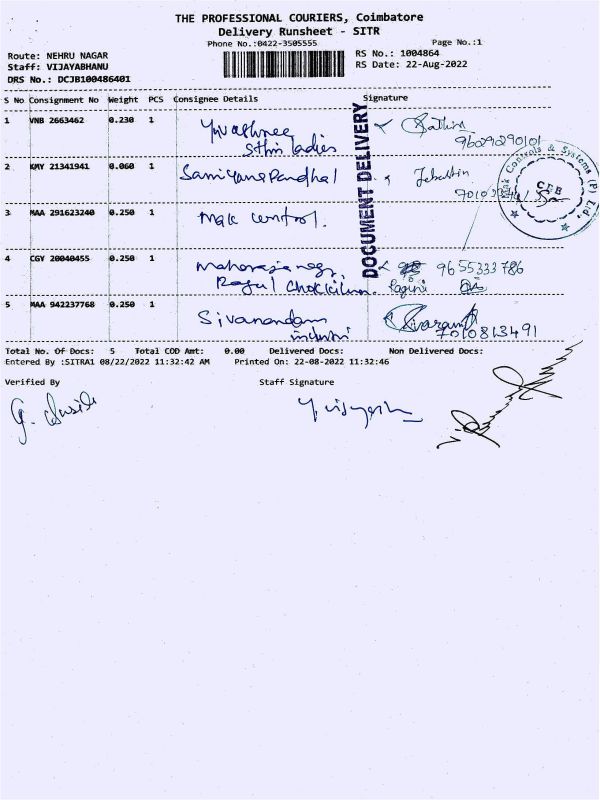 THE PROFESSIONAL COURIERS, Coimbatore
Delivery Runsheet - SITR
Phone No.:0422-3505555 Page No.:1
Route: NEHRU NAGAR RS No.: 1004864
Staff: VIJAYABHANU RS Date: 22-Aug-2022
DRS No.: DCJB100486401
S No Consignment No Weight PCS Consignee Details Signature
1 VNB 2663462 0.230 1
9629290101
2 KMY 21341941 0.060 1 Samiyana Pandhal
3 MAA 291623240 0.250 1 Mak control.
4 CGY 20040455 0.250 1 9655333786
Ragini
5 MAA 942237768 0.250 1 Sivanandam
7010813491
DOCUMENT DELIVERY
Mak Controls & Systems (P) Ltd.
Total No. Of Docs: 5 Total COD Amt: 0.00 Delivered Docs: Non Delivered Docs:
Entered By :SITRA1 08/22/2022 11:32:42 AM Printed On: 22-08-2022 11:32:46
Verified By Staff Signature